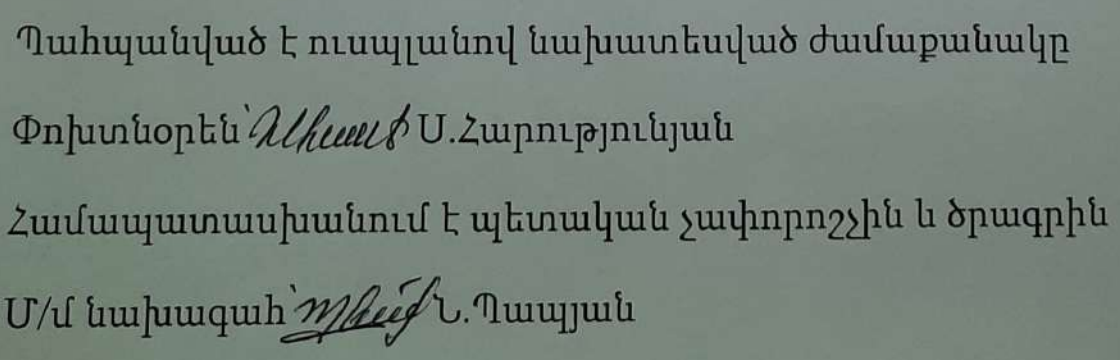 Պահպանված է ուսպլանով նախատեսված ժամաքանակը
Փոխտնօրեն՝ Ս.Հարությունյան
Համապատասխանում է պետական չափորոշչին և ծրագրին
Մ/մ նախագահ՝ Ն.Պապյան